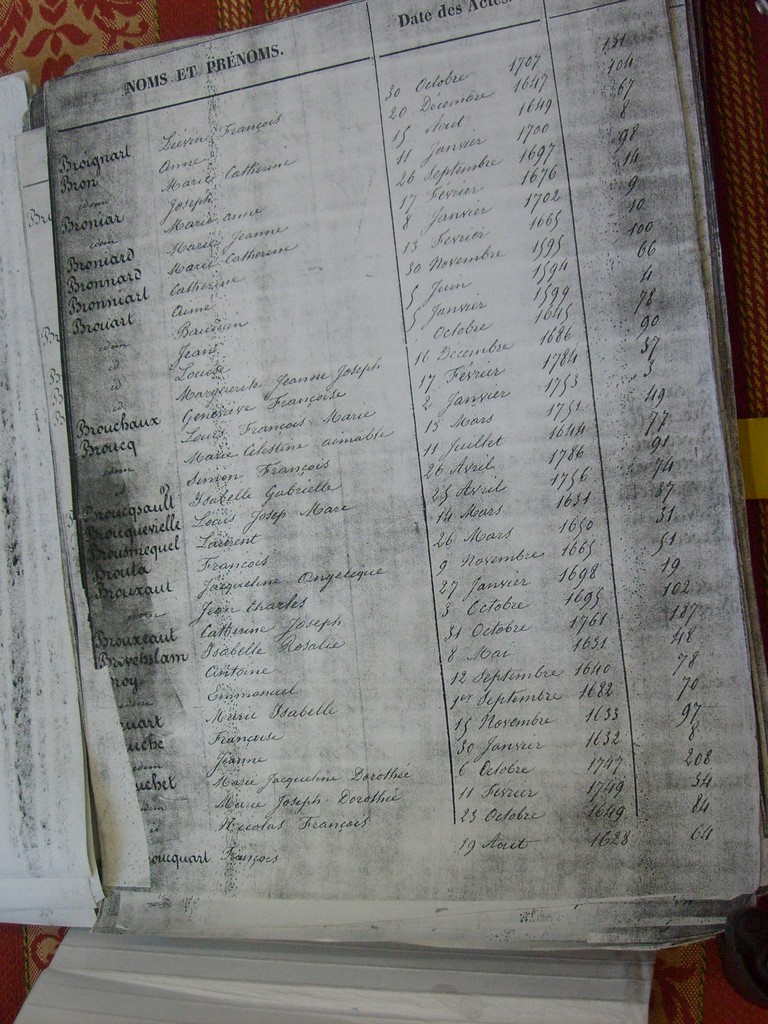 NOMS ET PRÉNOMS. Date des Actes.
Broignart Liévin François 30 Octobre 1707 131
Bron Anne 20 Décembre 1647 104
idem Marie Catherine 15 Aout 1649 67
Broniar Joseph 11 Janvier 1700 8
idem Marie anne 26 Septembre 1697 98
Broniard Marie Jeanne 17 Février 1676 14
Bronnard Marie Catherine 8 Janvier 1702 9
Bronniart Catherine 13 Fevrier 1665 10
Brouart Aimé 30 Novembre 1595 100
idem Bauduin 5 Juin 1594 66
id Jean 5 Janvier 1599 4
id Louise Octobre 1645 78
id Marguerite Jeanne Joseph 16 Decembre 1686 90
Brouchaux Geneviève Françoise 17 Février 1784 37
Broucq Louis François Marie 2 Janvier 1753 3
idem Marie Celestine aimable 13 Mars 1751 49
id Simon François 11 Juillet 1644 77
Broucqsault Isabelle Gabrielle 26 Avril 1786 91
Brouquevielle Louis Josep Marc 25 Avril 1756 74
Brousmequel Laurent 14 Mars 1631 37
Brouta François 26 Mars 1650 31
Brouxaut Jacqueline Angelique 9 Novembre 1665 51
idem Jean Charles 27 Janvier 1698 19
Brouxeaut Catherine Joseph 3 Octobre 1695 102
Isabelle Rosalie 31 Octobre 1761 187
roy Antoine 8 Mai 1631 48
idem Emmanuel 12 Septembre 1640 78
uart Marie Isabelle 1er Septembre 1682 70
uche Françoise 15 Novembre 1633 97
idem Jeanne 30 Janvier 1632 8
uchet Marie Jacqueline Dorothée 6 Octobre 1747 208
idem Marie Joseph Dorothée 11 Fevrier 1749 34
id Nicolas François 23 Octobre 1649 84
oucquart François 19 Aout 1628 64